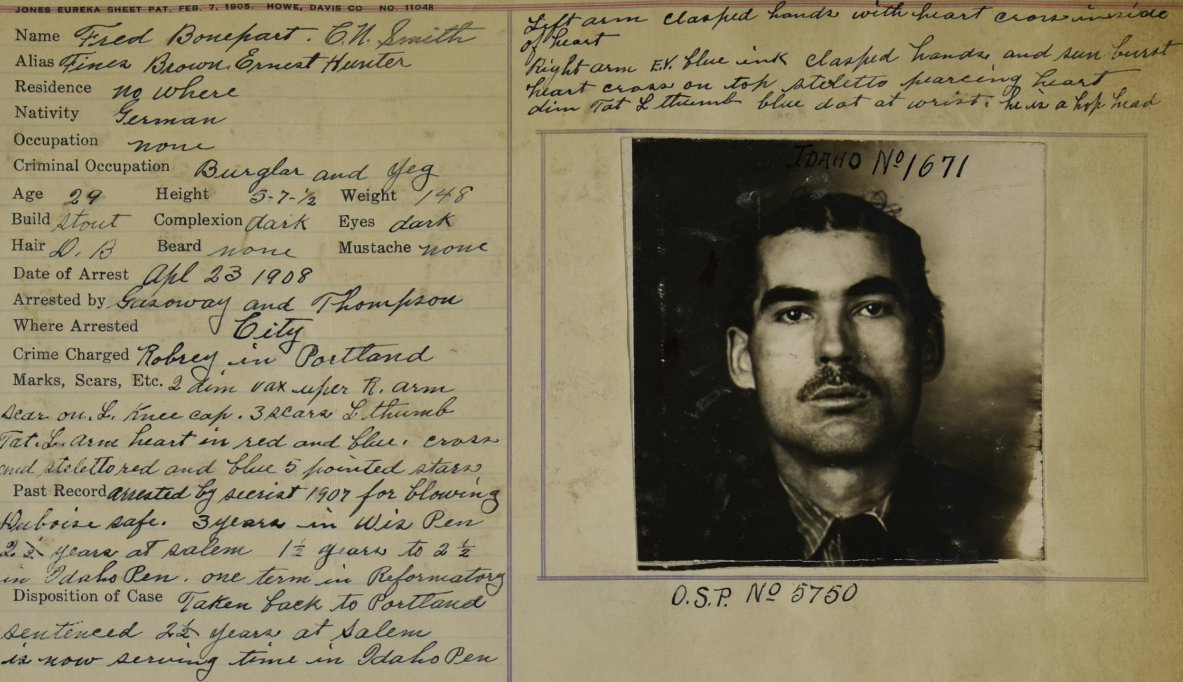 JONES EUREKA SHEET PAT. FEB. 7, 1905. HOWE, DAVIS CO NO. 11048
Name Fred Bonepart. C.N. Smith
Alias Fines Brown. Ernest Hunter
Residence no where
Nativity German
Occupation none
Criminal Occupation Burglar and yeg
Age 29 Height 5-7-½ Weight 148
Build stout Complexion dark Eyes dark
Hair D. B Beard none Mustache none
Date of Arrest Apl 23 1908
Arrested by Gasoway and Thompson
Where Arrested City
Crime Charged Robrey in Portland
Marks, Scars, Etc. 2 dim vax uper R. arm
scar on. L. Knee cap. 3 scars L thumb
Tat. L. arm heart in red and blue. cross
and steletto red and blue 5 pointed stars
Past Record arrested by secrist 1907 for blowing
Duboise safe. 3 years in Wis Pen
2 ½ years at salem 1 ½ years to 2 ½
in Idaho Pen. one term in Reformatory
Disposition of Case Taken back to Portland
sentenced 2½ years at Salem
is now serving time in Idaho Pen
Left arm clasped hands with heart cross inside
of heart
Right arm E.V. blue ink clasped hands and sun burst
heart cross on top steletto piercing heart
dim Tat L thumb blue dot at wrist. he is a hop head
IDAHO No 1671
O.S.P. No 5750